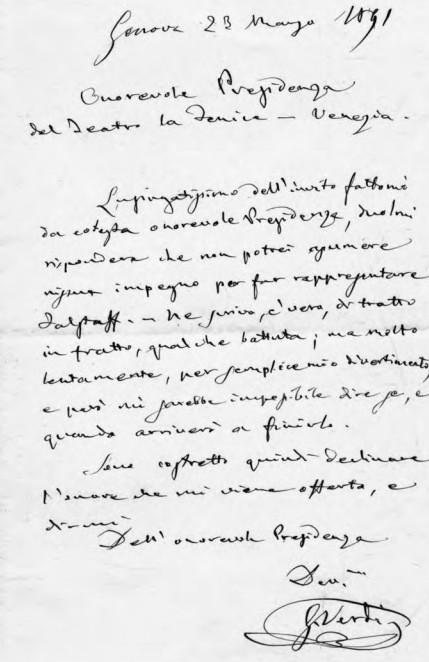 Genova 23 Marzo 1891
Onorevole Presidenza
del Teatro la Fenice — Venezia.
Lusingatissimo dell'invito fattomi
da cotesta onorevole Presidenza, duolmi
rispondere che non potrei assumere
nissun impegno per far rappresentare
Falstaff. — Ne scrivo, è vero, di tratto
in tratto, qualche battuta; ma molto
lentamente, per semplice mio divertimento,
e però mi sarebbe impossibile dire se, e
quando arriverò a finirlo.
Sono costretto quindi declinare
l'onore che mi viene offerto, e
dirmi
Dell'onorevole Presidenza
Dev.mo
G. Verdi